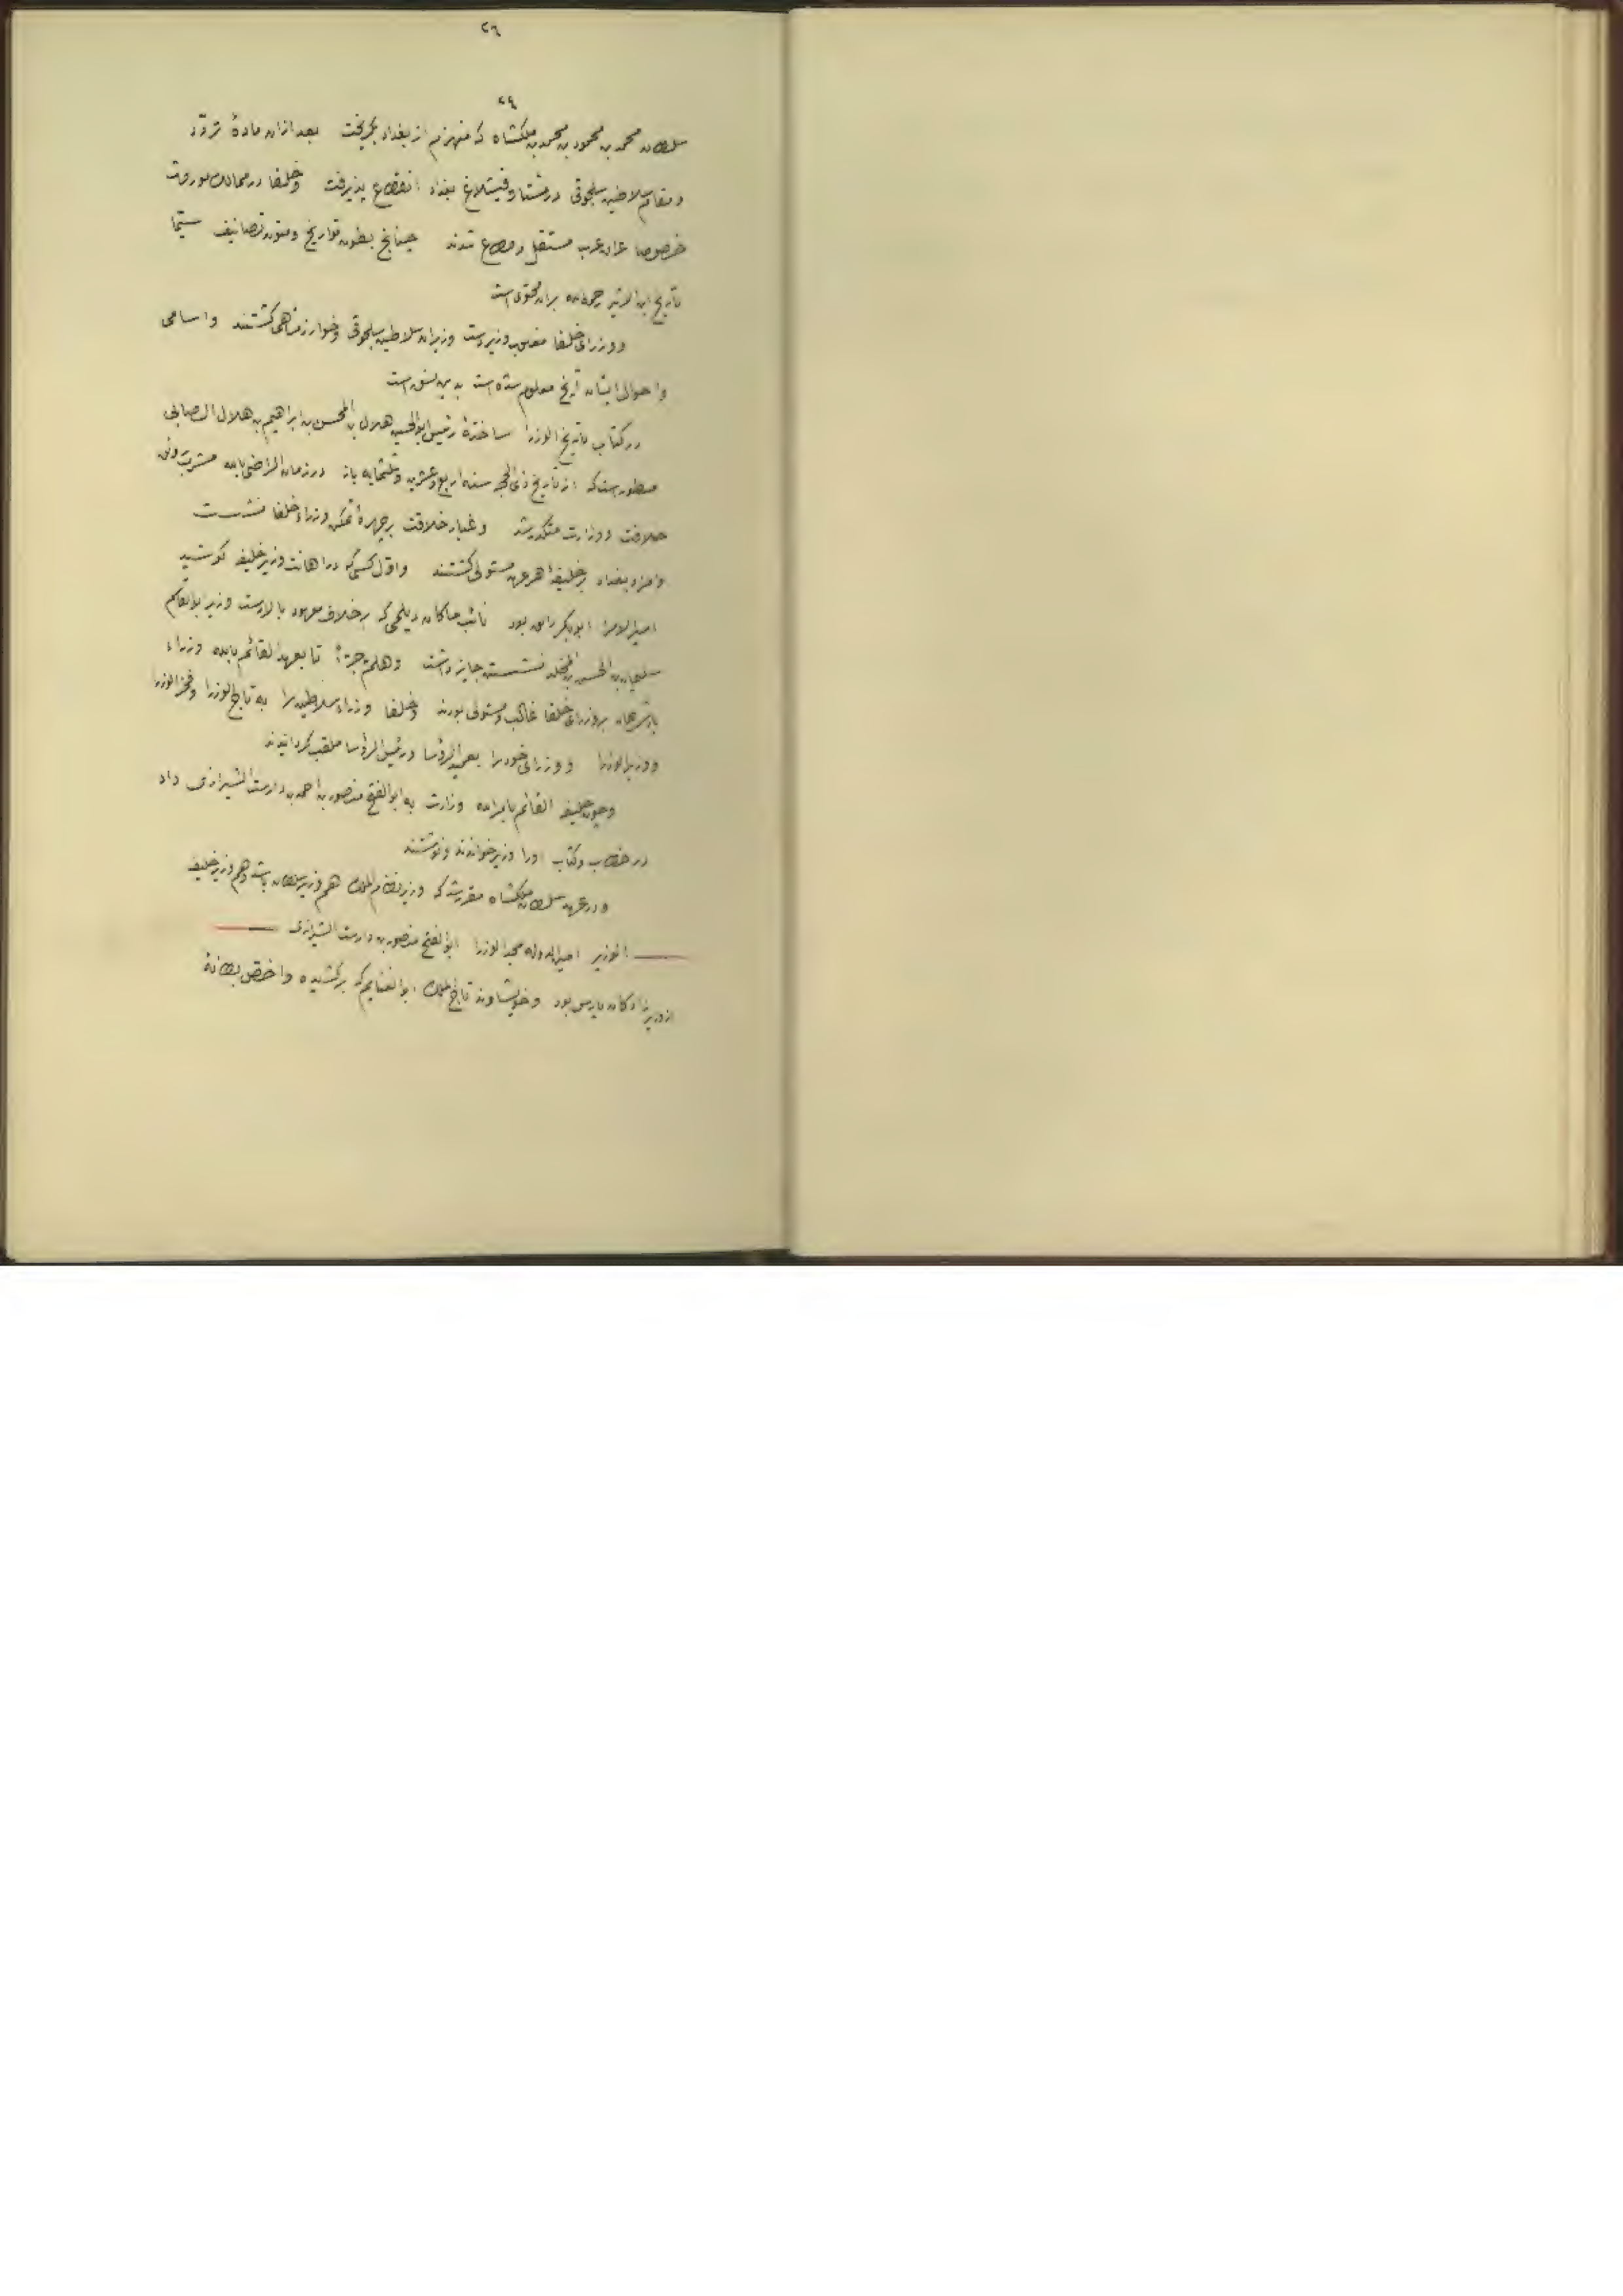 ٢٦
٢٩
سلطان محمد بن محمود بن محمد بن ملكشاه كه منهزم از بغداد بگريخت بعد ازان مادهٔ تردّد
و مقام سلاطين سلجوقى در مشتا و قيشلاغ بغداد انقطاع پذيرفت و خلفا در ممالك موروث
خصوصا عراق عرب مستقل و مطاع شدند چنانچ بطون تواريخ و متون تصانيف سيّما
تأريخ ابن الاثير رحمه الله بران محتوى است
و وزراى خلفا مغلوب و زيردست وزيران سلاطين سلجوقى و خوارزمشاهى گشتند و اسامى
و احوال ايشان آنچ معلوم شده است بدين نسق است
در كتاب تأريخ الوزرا ساختهٔ رئيس ابو الحسين هلال بن المحسن بن ابراهيم بن هلال الصابى
مسطورست كه از تأريخ ذى الحجه سنه اربع و عشرين و ثلثمايه باز در زمان الراضى بالله مشرب رونق
خلافت و وزارت متكدر شد و غبار خلاقت بر چهرهٔ تمكن وزراء خلفا نشست
و امراء بغداد بر خليفهٔ هر عهد مستولى گشتند و اوّل كسى كه در اهانت وزير خليفه كوشيد
امير الامرا ابو بكر رايق بود نائب ماكان ديلمى كه بر خلاف معهود بالا دست وزير ابو القاسم
سليمان بن الحسن بن المخلد نشستن جايز داشت و هلمّ جرّا تا بعهد القائم بالله وزراء
پادشاهان بر وزراى خلفا غالب و مستولى بودند و خلفا وزراء سلاطين را به تاج الوزرا و فخر الوزرا
و وزير الوزرا و وزراى خود را بعميد الرؤسا و رئيس الرؤسا ملقب گردانيدند
و چون خليفه القائم بامر الله وزارت به ابو الفتح منصور بن احمد بن دارست الشيرازى داد
در خطاب و كتاب او را وزير خواندند و نوشتند
و در عهد سلطان ملكشاه مقرر شد كه وزير نظام الملك هم وزير سلطان باشد و هم وزير خليفه
الوزير امين الدوله مجد الوزرا ابو الفتح منصور بن دارست الشيرازى
از وزير زادگان پارس بود و خويشاوند تاج الملك ابو الغنايم كه بركشيده و اختصّ بطانهٔ